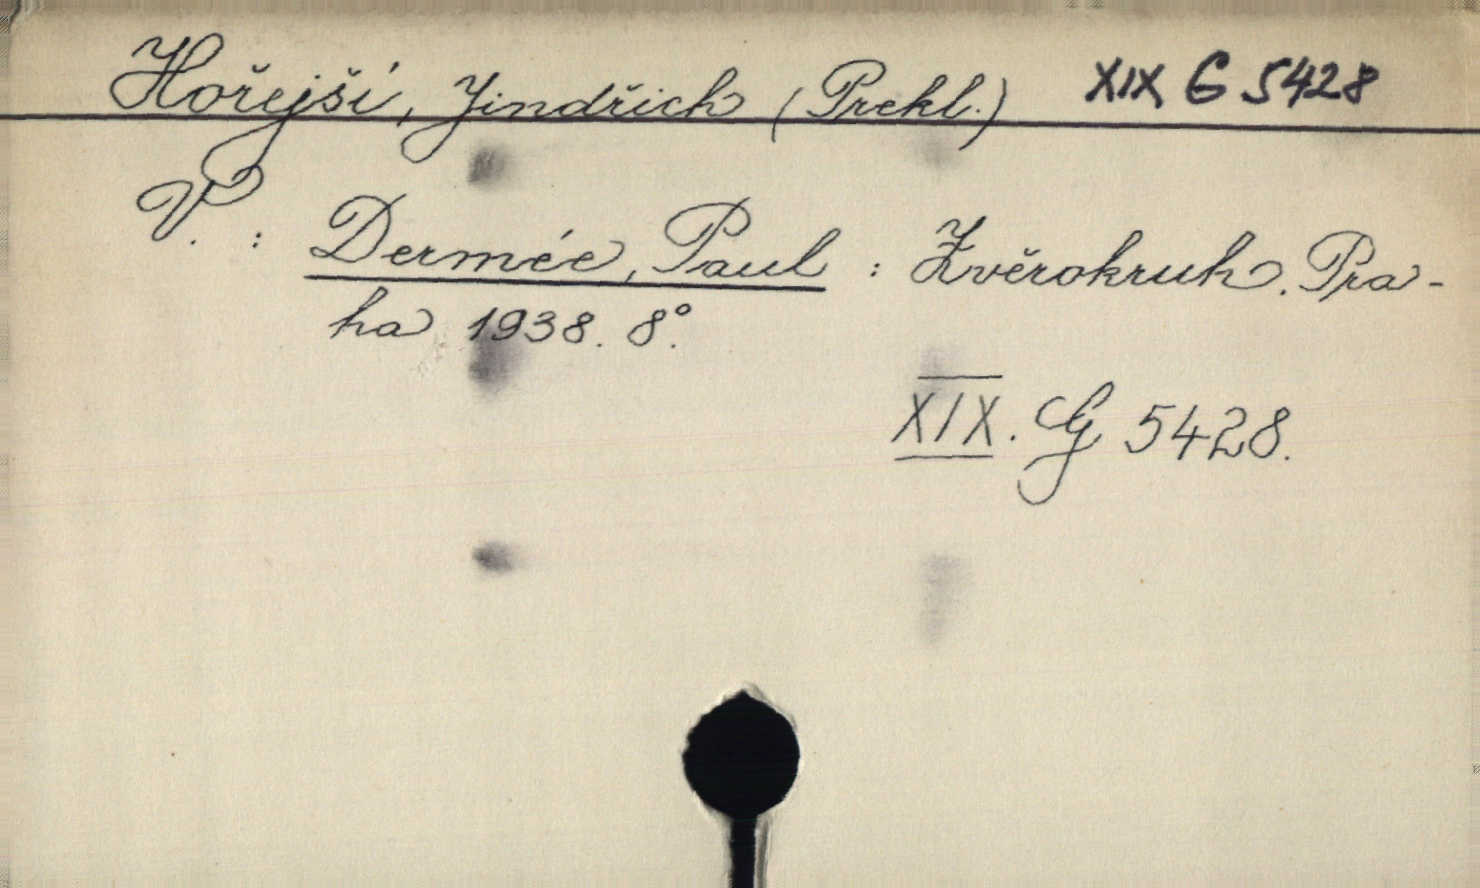 Hořejší, Jindřich (Prekl.) XIX G 5428
V. : Dermée, Paul : Zvěrokruh. Pra-
ha 1938. 8°.
XIX. G 5428.